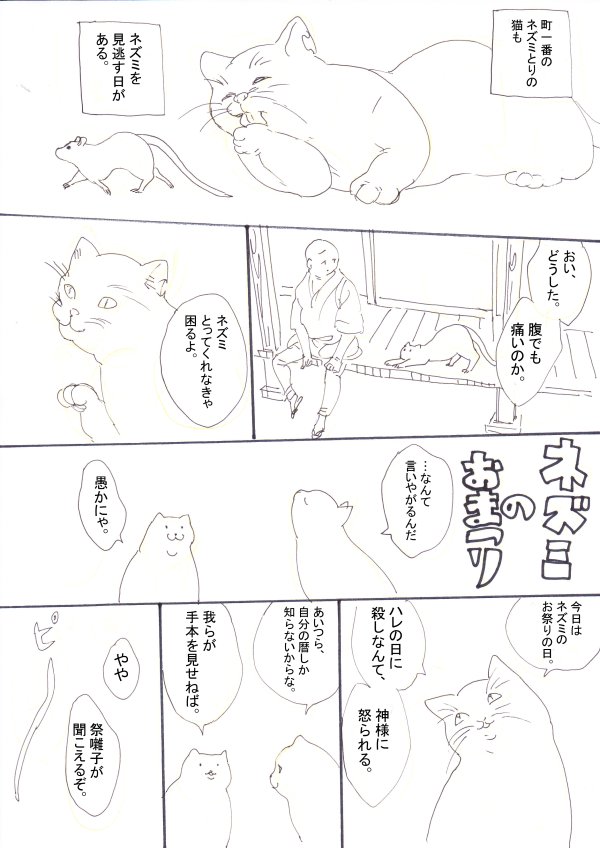 町一番の
ネズミとりの
猫も
ネズミを
見逃す日が
ある。
おい、
どうした。
腹でも
痛いのか。
ネズミ
とってくれなきゃ
困るよ。
ネズミ
の
おまつり
…なんて
言いやがるんだ
愚かにゃ。
今日は
ネズミの
お祭りの日。
ハレの日に
殺しなんて、
神様に
怒られる。
あいつら、
自分の暦しか
知らないからな。
我らが
手本を見せねば。
ピー
やや
祭囃子が
聞こえるぞ。